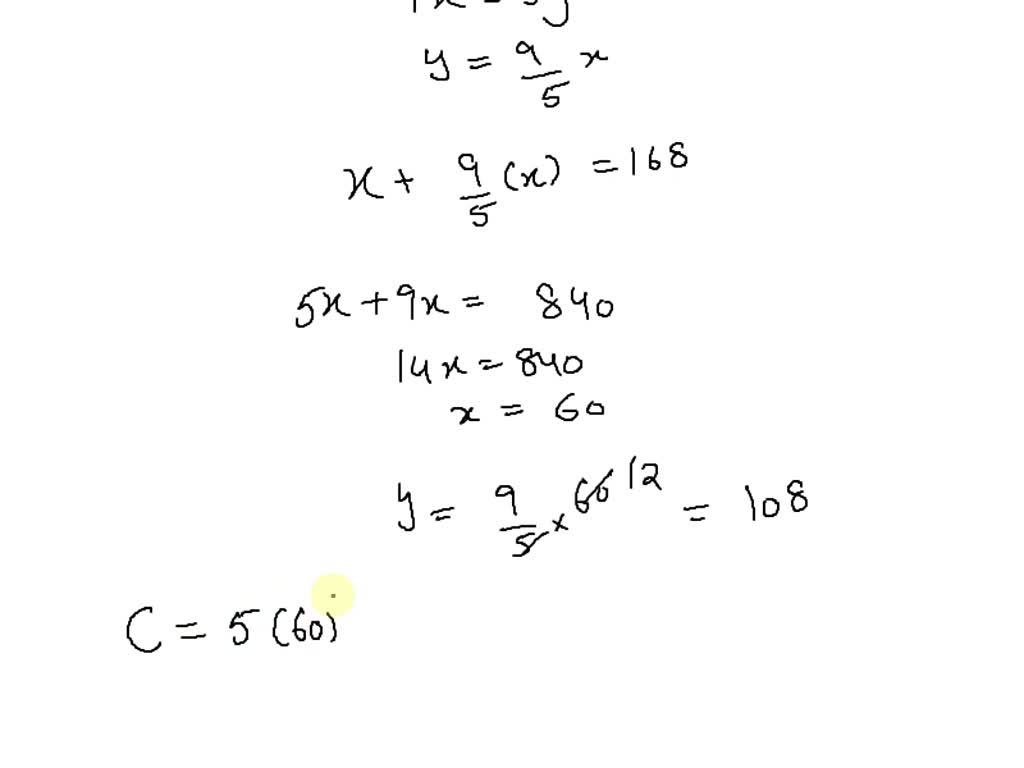 y = 9/5 x
x + 9/5 (x) = 168
5x + 9x = 840
14x = 840
x = 60
y = 9/5 × 60 12 = 108
C = 5 (60)